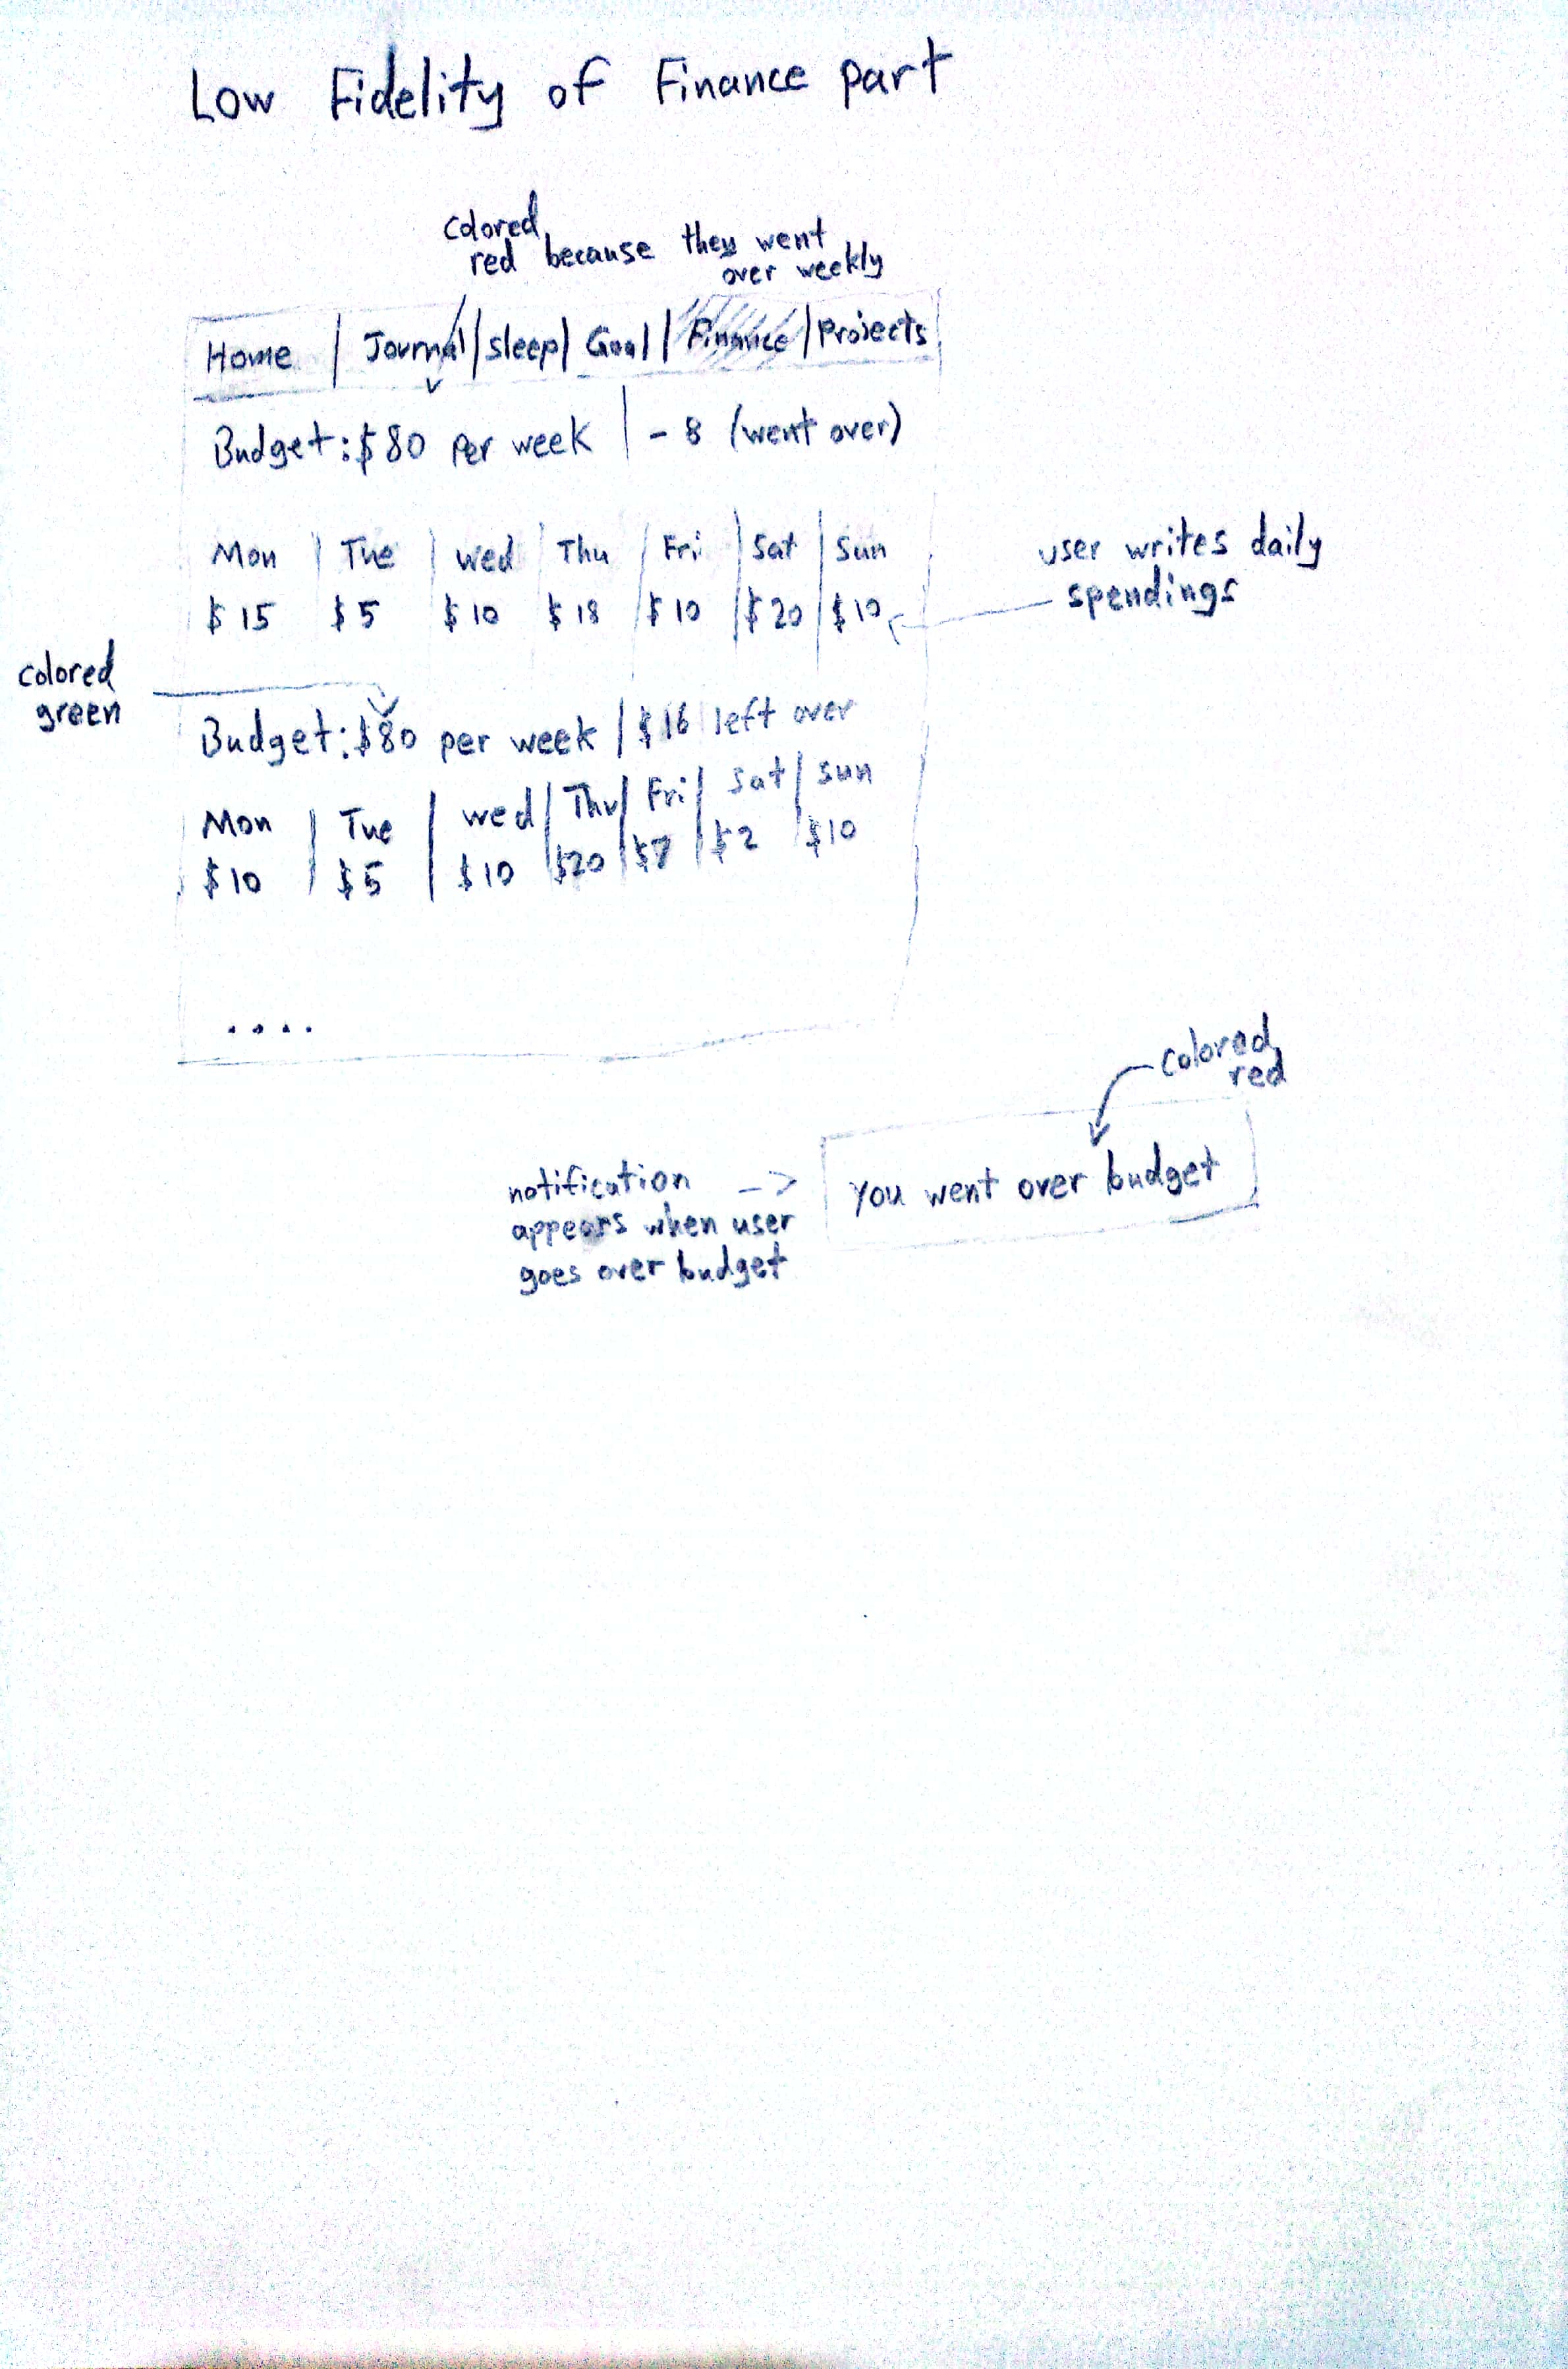 Low Fidelity of Finance part
colored
red because they went
over weekly
Home | Journal | sleep | Goal | Finance | Projects
Budget: $80 per week | - 8 (went over)
Mon | Tue | wed | Thu | Fri | Sat | Sun
$15 $5 $10 $18 $10 $20 $10
user writes daily
spendings
colored
green
Budget: $80 per week | $16 left over
Mon | Tue | wed | Thu | Fri | Sat | sun
$10 | $5 | $10 | $20 | $7 | $2 | $10
....
colored
red
notification
appears when user
goes over budget
you went over budget